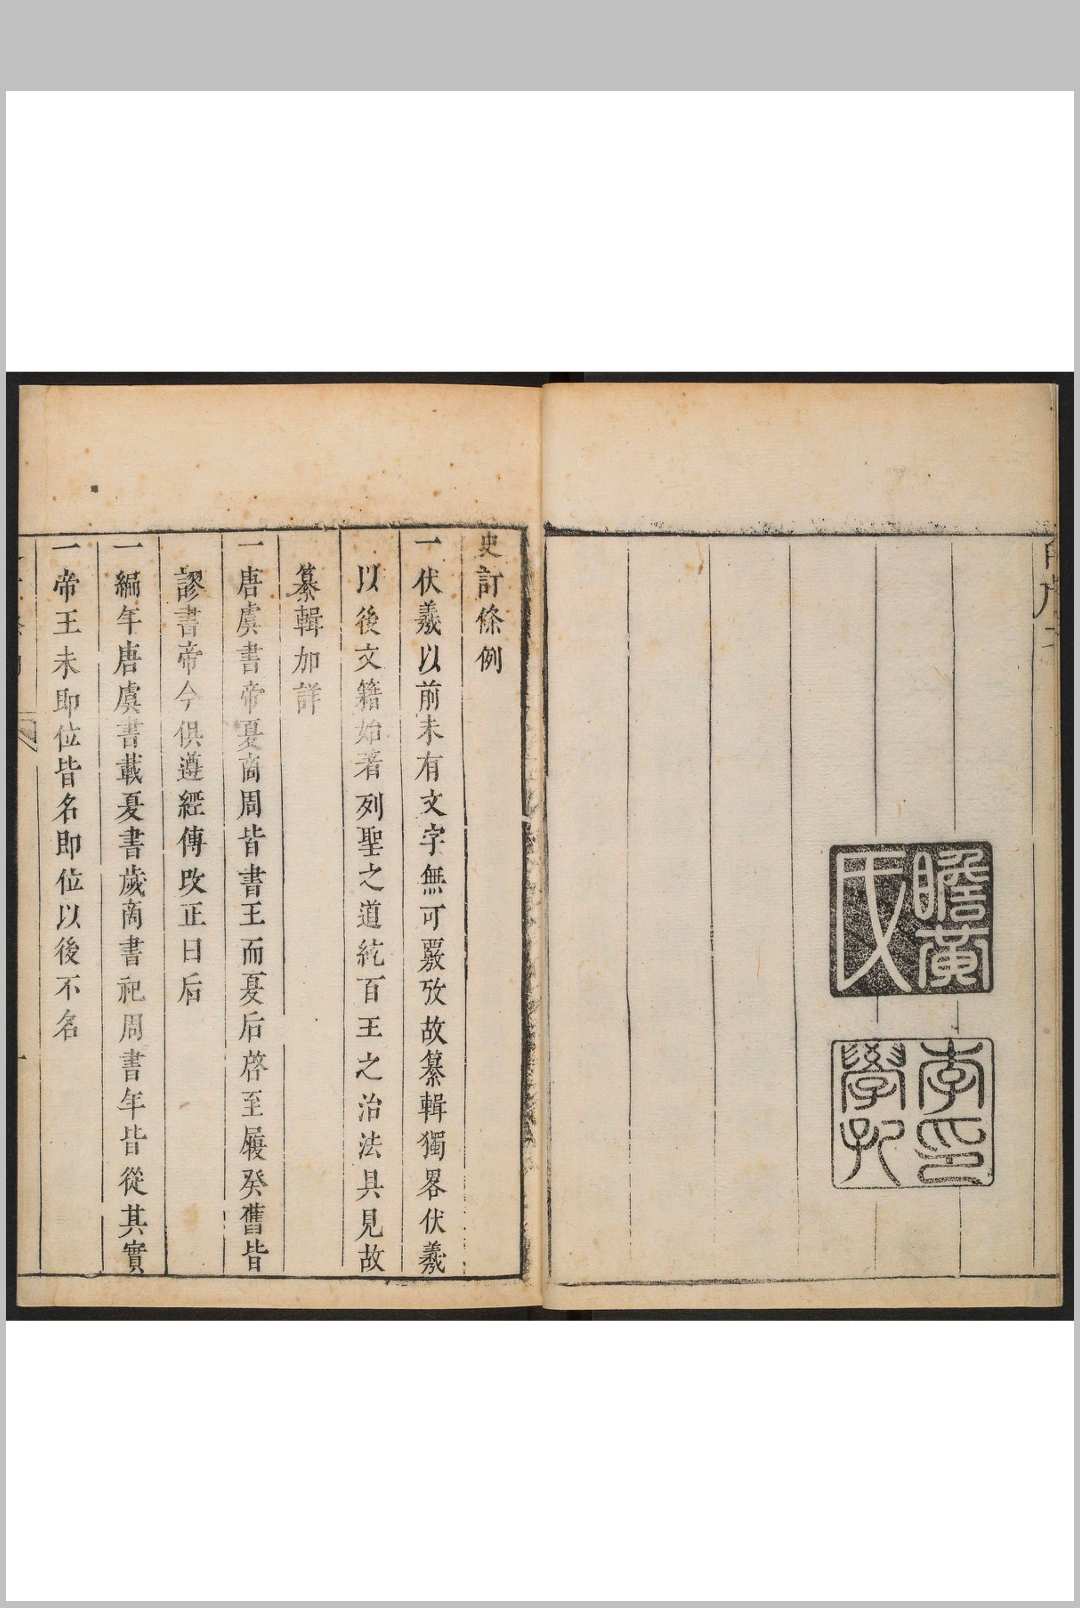 李印
學孔
瞻黃
氏
史訂條例
一伏羲以前未有文字無可覈攷故纂輯獨畧伏羲
以後文籍始著列聖之道統百王之治法具見故
纂輯加詳
一唐虞書帝夏商周皆書王而夏后啓至履癸舊皆
謬書帝今俱遵經傳改正曰后
一編年唐虞書載夏書歲商書祀周書年皆從其實
一帝王未即位皆名即位以後不名